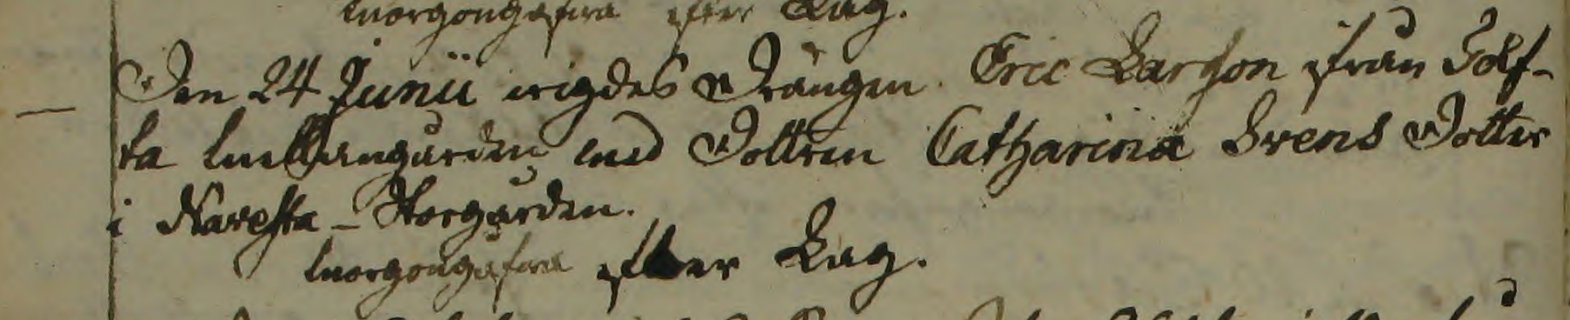 Morgongåfwa efter Lag.
Den 24 Junii wigdes Drängen Eric Larsson ifrån Tolf-
ta Mellangården med Dottren Catharina Svens Dotter
i Navesta - Storgården.
Morgongåfwa efter Lag.